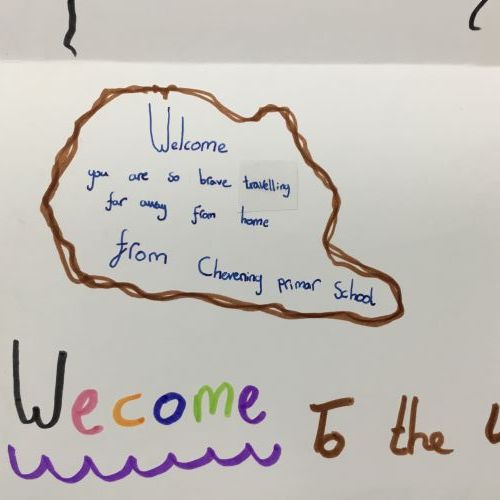 Welcome
you are so brave travelling
far away from home
from Chevening primar School
Wecome To the